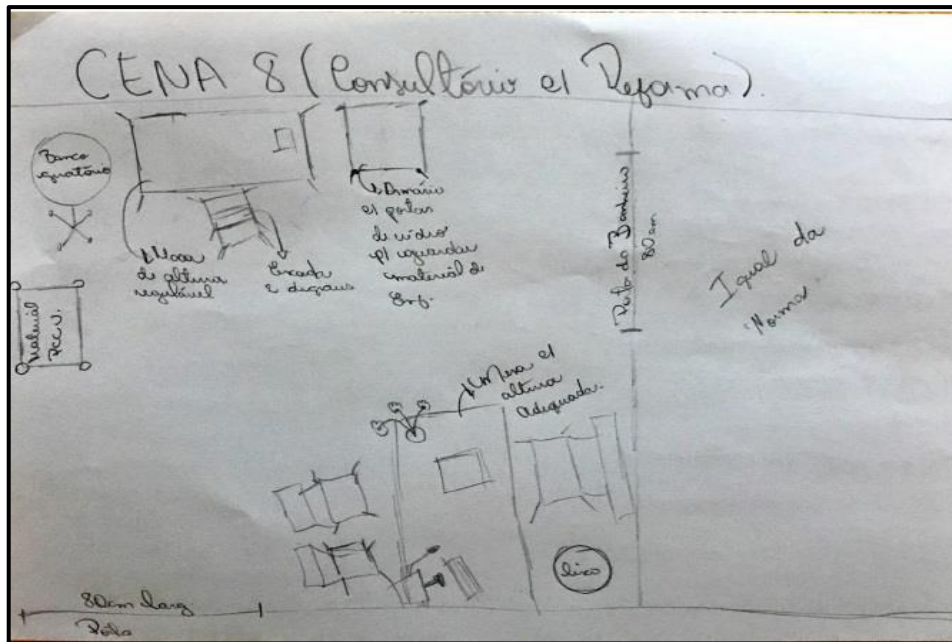 CENA 8 (Consultório c/ Reforma).
Banco
giratório
Mesa
de altura
regulável
Escada
2 degraus
Armário
c/ portas
de vidro
p/ guardar
material de
Enf.
Material
PCCU.
Porta do Banheiro
80cm
Igual da
Norma.
Mesa c/
altura
adequada.
lixo
80cm larg
Porta